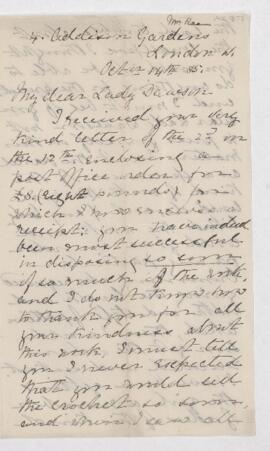 Mrs Rae
4. Addison Gardens
London W.
Octr 14th 85.
My dear Lady Dawson
I received your very
kind letter of the 2nd on
the 12th. enclosing a
post office order for
£8. (eight pounds) for
which I now enclose
receipt; you have indeed
been most successful
in disposing so soon
of so much of the work
and I do not know how
to thank you for all
your kindness about
this work. I must tell
you I never expected
that you would sell
the crochet so soon,
and when I saw all